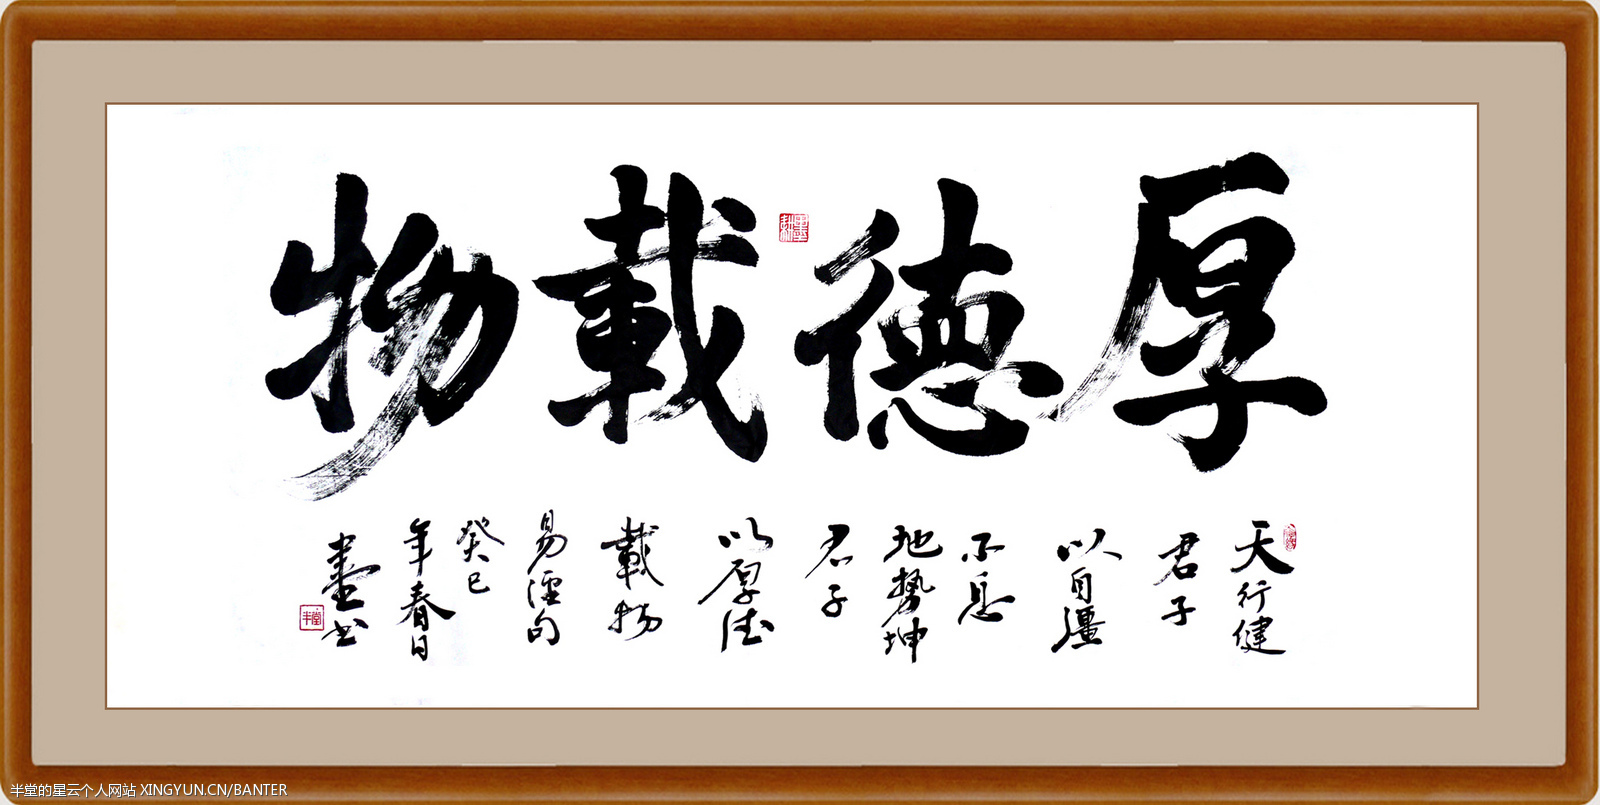 厚德載物
天行健
君子
以自彊
不息
地勢坤
君子
以厚德
載物
易經句
癸巳
年春日
書
半堂的星云个人网站 XINGYUN.CN/BANTER